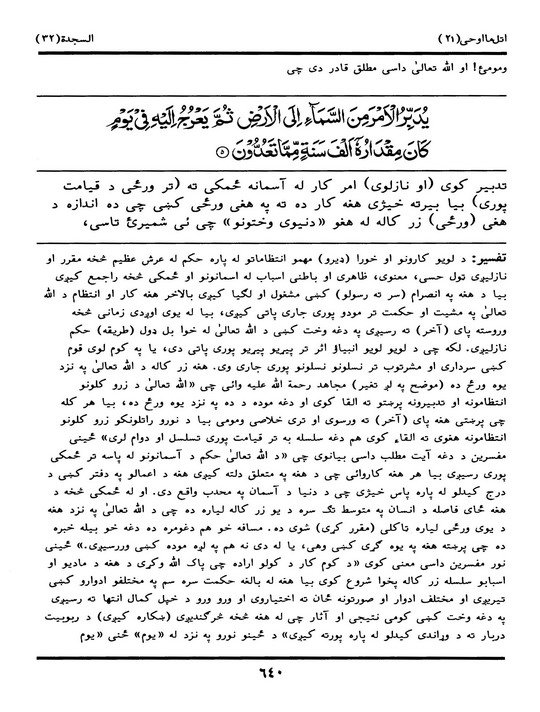 اتل ما اوحی (٢١) السجدة (٣٢)
ومومئ! او الله تعالیٰ داسې مطلق قادر دی چې
يُدَبِّرُ الْأَمْرَ مِنَ السَّمَاءِ إِلَى الْأَرْضِ ثُمَّ يَعْرُجُ إِلَيْهِ فِي يَوْمٍ
كَانَ مِقْدَارُهُ أَلْفَ سَنَةٍ مِّمَّا تَعُدُّونَ ٥
تدبیر کوی (او نازلوی) امر کار له آسمانه ځمکې ته (تر ورځې د قیامت
پوری) بیا بیرته خیژی هغه کار ده ته په هغې ورځې کښې چې ده اندازه د
هغې (ورځې) زر کاله له هغو «دنیوی وختونو» چې ئی شمیرئ تاسې،
تفسیر: د لویو کارونو او خورا (ډیرو) مهمو انتظاماتو له پاره حکم له عرش عظیم څخه مقرر او
نازلیږی تول حسی، معنوی، ظاهری او باطنی اسباب له اسمانونو او ځمکې څخه راجمع کیږی
بیا د هغه په انصرام (سر ته رسولو) کښې مشغول او لګیا کیږی بالاخر هغه کار او انتظام د الله
تعالیٰ په مشیت او حکمت تر مودو پوری جاری پاتې کیږی، بیا له یوی اوږدی زمانې څخه
وروسته پای (آخر) ته رسیږی په دغه وخت کښې د الله تعالیٰ له خوا بل ډول (طریقه) حکم
نازلیږی. لکه چې د لویو لویو انبیاؤ اثر تر پیړیو پیړیو پوری پاتې دی، یا په کوم لوی قوم
کښې سرداری او مشرتوب تر نسلونو نسلونو پوری جاری وی. هغه زر کاله د الله تعالیٰ په نزد
یوه ورځ ده (موضح په لږ تغیر) مجاهد رحمة الله علیه وائی چې «الله تعالیٰ د زرو کلونو
انتظامونه او تدبیرونه پرښتو ته القا کوی او دغه موده د ده په نزد یوه ورځ ده، بیا هر کله
چې پرښتې هغه پای (آخر) ته ورسوی او تری خلاصی ومومی بیا د نورو راتلونکو زرو کلونو
انتظامونه هغوی ته القاء کوی هم دغه سلسله به تر قیامت پوری تسلسل او دوام لری» ځینی
مفسرین د دغه آیت مطلب داسې بیانوی چې «د الله تعالیٰ حکم د آسمانونو له پاسه تر ځمکې
پوری رسیږی بیا هر هغه کاروائی چې د هغه په متعلق دلته کیږی هغه د اعمالو په دفتر کښې د
درج کیدلو له پاره پاس خیژی چې د دنیا د آسمان په محدب واقع دی. او له ځمکې څخه د
هغه ځای فاصله د انسان په متوسط تګ سره د یو زر کاله لیاره ده چې د الله تعالیٰ په نزد هغه
د یوې ورځې لیاره تاکلې (مقرر کړی) شوی ده. مسافه خو هم دغومره ده دغه خو بیله خبره
ده چې پرښته هغه په یوه ګړی کښې وهی، یا له دی نه هم په لږه موده کښې وررسیږی.» ځینی
نور مفسرین داسې معنی کوی «د کوم کار د کولو اراده چې پاک الله وکړی د هغه د مادیو او
اسبابو سلسله زر کاله پخوا شروع کوی بیا هغه له بالغه حکمت سره سم په مختلفو ادوارو کښې
تیریږی او مختلف ادوار او صورتونه ځان ته اختیاروی او ورو ورو د خپل کمال انتها ته رسیږی
په دغه وخت کښې کومی نتیجی او آثار چې له هغه څخه څرګندیږی (ښکاره کیږی) د ربوبیت
دربار ته د وړاندی کیدلو له پاره پورته کیږی» د ځینو نورو په نزد له «یوم» ځنی «یوم
٦٤٠